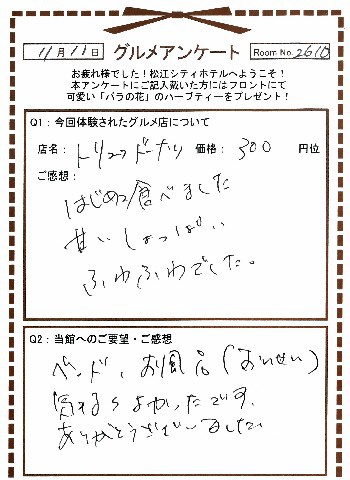 11月11日 グルメアンケート Room No. 2610
お疲れ様でした！松江シティホテルへようこそ！
本アンケートにご記入戴いた方にはフロントにて
可愛い「バラの花」のハーブティーをプレゼント！
Q1：今回体験されたグルメ店について
店名： ドーナツ 価格： 300 円位
ご感想：
はじめて食べました
甘い しょっぱい
ふわふわでした。
Q2：当館へのご要望・ご感想
ベッド、お風呂
よかったです。
ありがとうございました。